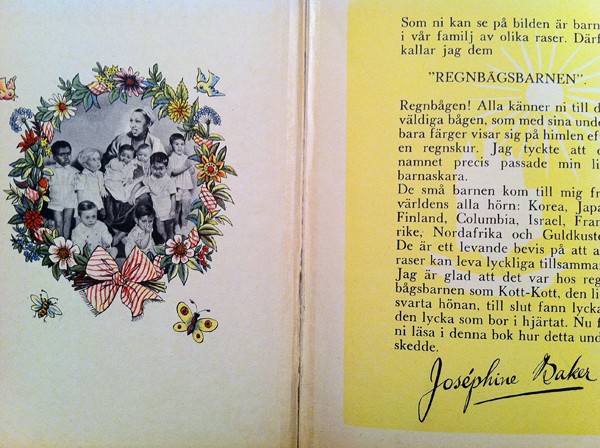 Som ni kan se på bilden är barn
i vår familj av olika raser. Därf
kallar jag dem
"REGNBÅGSBARNEN".
Regnbågen! Alla känner ni till d
väldiga bågen, som med sina unde
bara färger visar sig på himlen eft
en regnskur. Jag tyckte att d
namnet precis passade min li
barnaskara.
De små barnen kom till mig fr
världens alla hörn: Korea, Japa
Finland, Columbia, Israel, Fran
rike, Nordafrika och Guldkuste
De är ett levande bevis på att a
raser kan leva lyckliga tillsamma
Jag är glad att det var hos reg
bågsbarnen som Kott-Kott, den li
svarta hönan, till slut fann lycka
den lycka som bor i hjärtat. Nu f
ni läsa i denna bok hur detta und
skedde.
Joséphine Baker